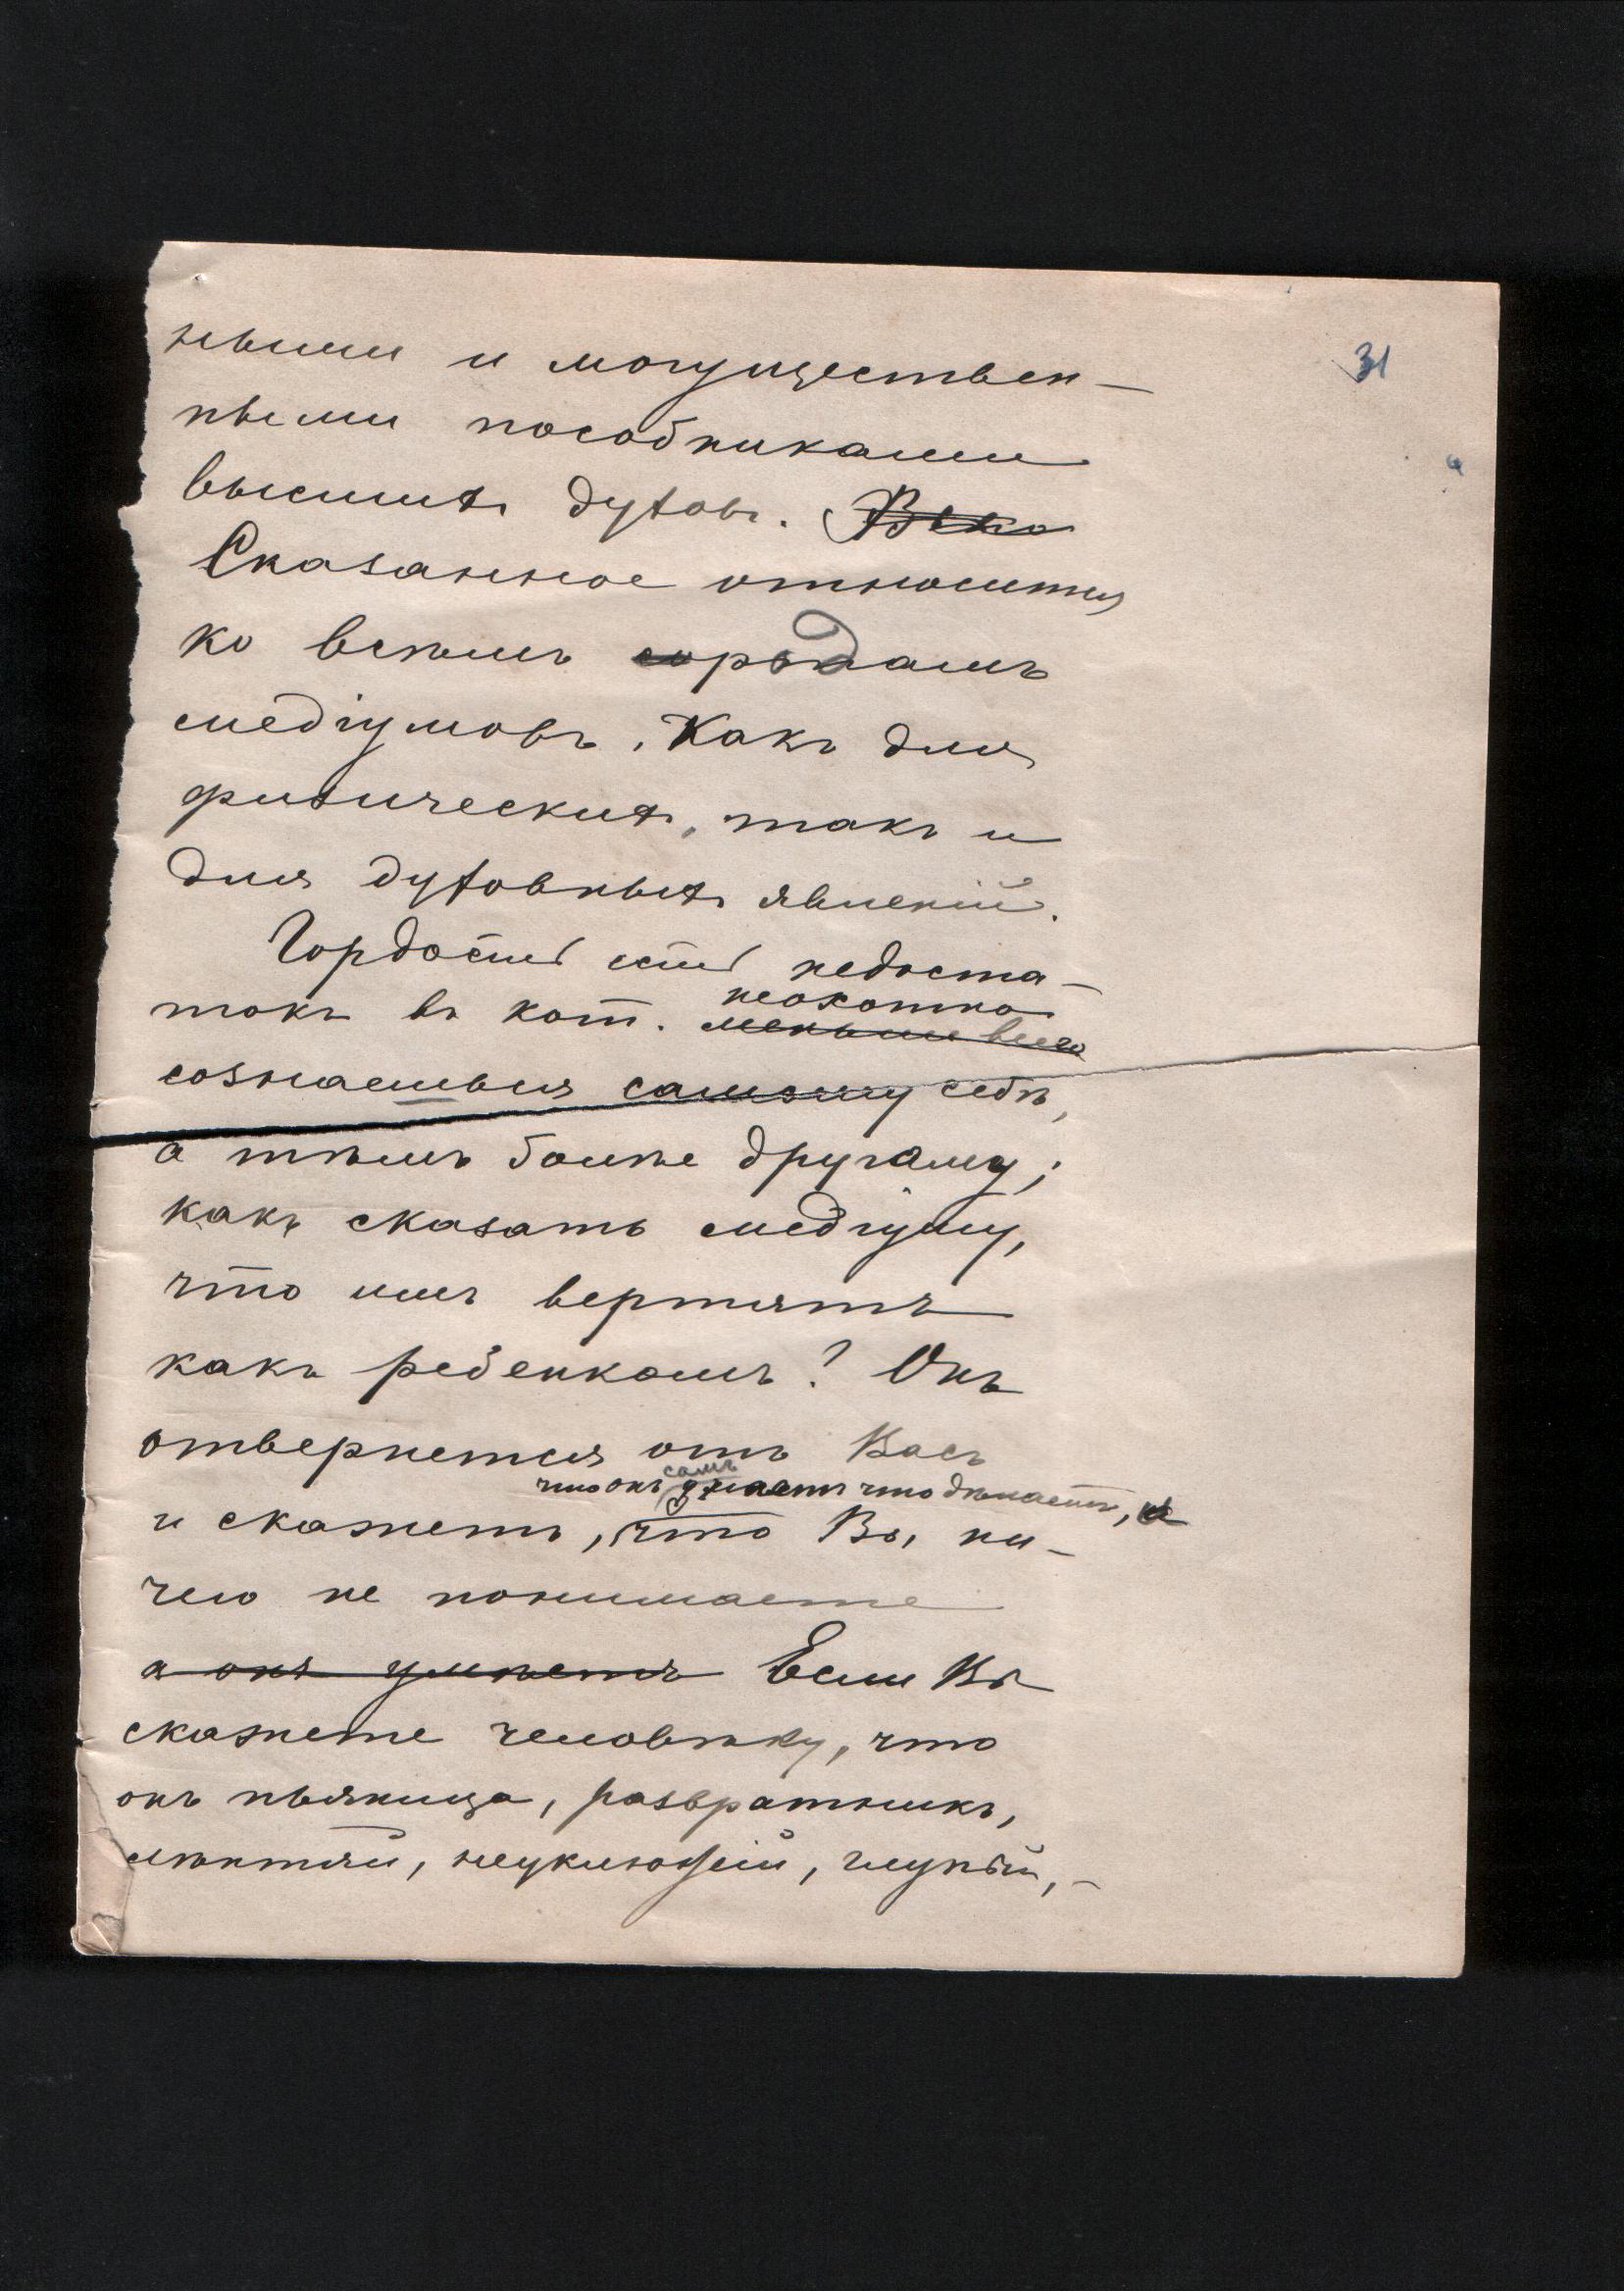 31
ными и могуществен-
ными пособниками
высшихъ духовъ.
Сказанное относится
ко всѣмъ сородамъ
медіумовъ. Какъ для
физическихъ, такъ и
для духовныхъ явленій.
Гордость есть недоста-
неохотно
токъ въ кот. меньше всего
сознаешься самому себѣ,
а тѣмъ болѣе другому;
какъ сказать медіуму,
что имъ вертятъ
какъ ребенкомъ? Онъ
отвернется отъ Васъ
самъ
что онъ знаетъ что дѣлаетъ, а
и скажетъ, что Вы ни-
чего не понимаете
а онъ умнѣетъ Если Вы
скажете человѣку, что
онъ пьяница, развратникъ,
лѣнтяй, неуклюжій, глупый, -